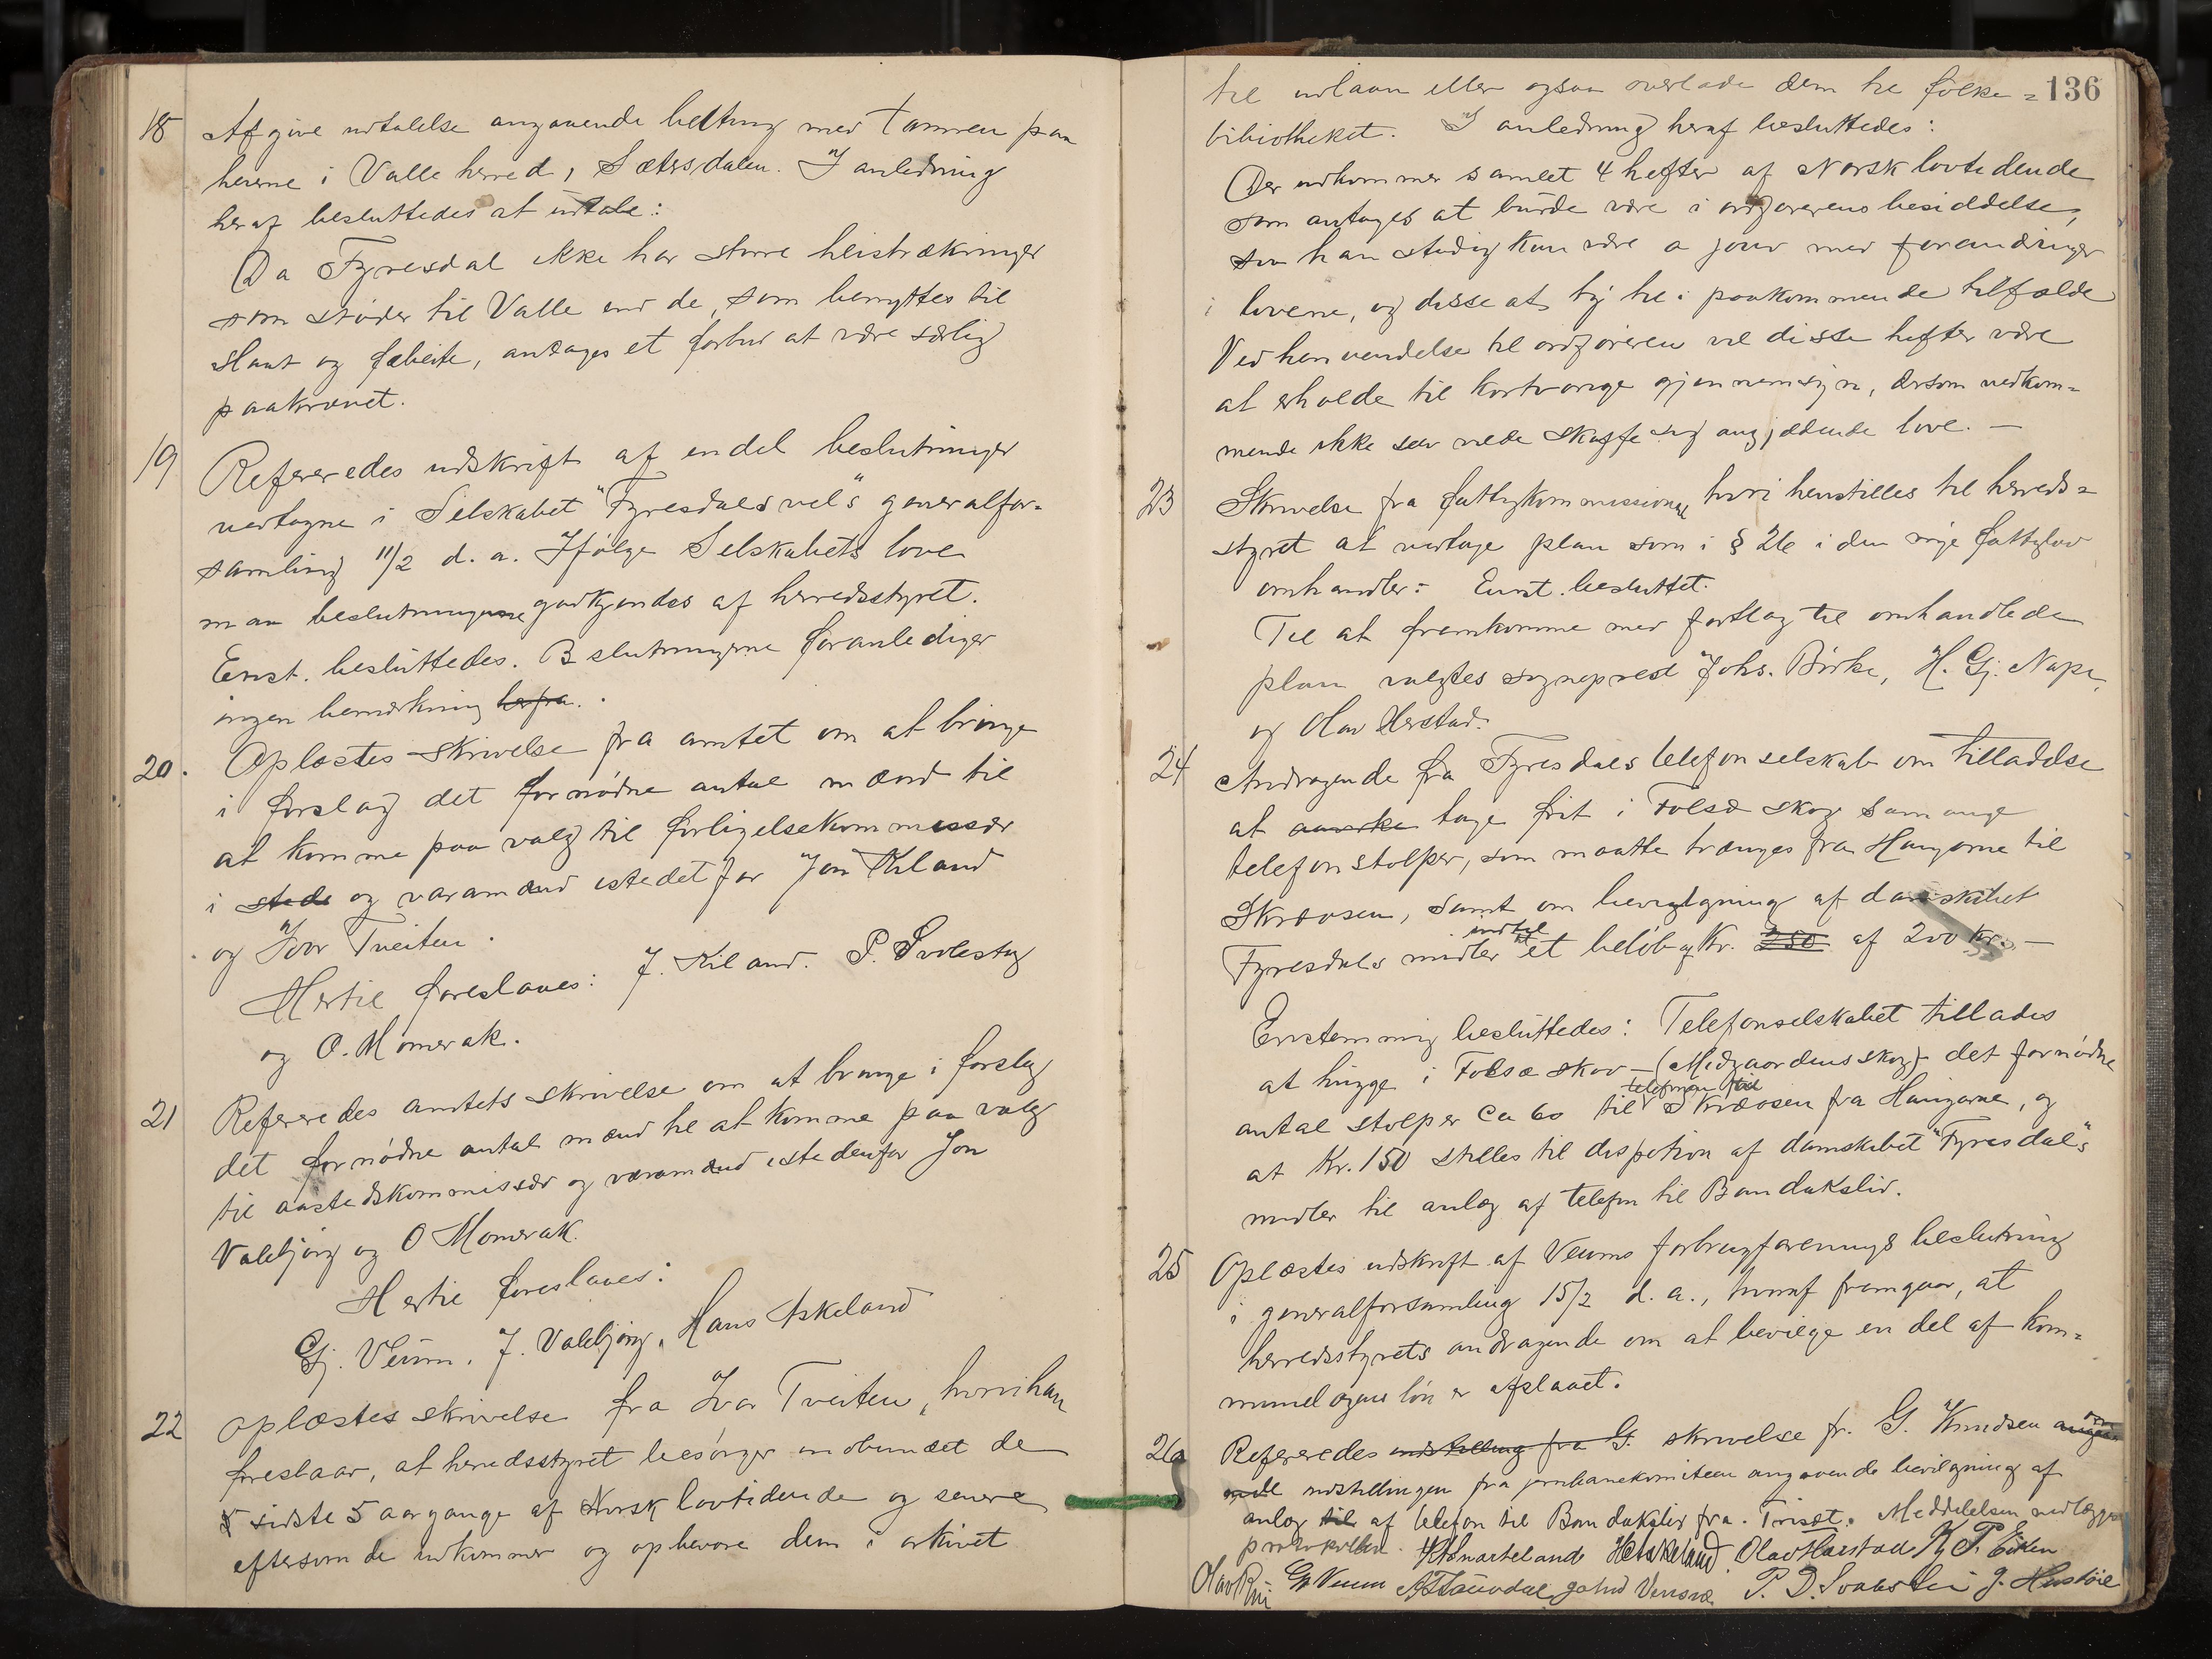 18 Afgive udtalelse angaaende beitning med tamren paa
heierne i Valle herred, Sætersdalen. I anledning
heraf besluttedes at udtale:
Da Fyresdal ikke har større heistrækninger
som støder til Valle end de, som benyttes til
slaat og fæbeite, antages et forbud at være særlig
paakrævet.
19 Refereredes udskrift af endel beslutninger
vedtagne i Selskabet "Fyresdals vel"s generalfor-
samling 11/2 d. a. Ifølge Selskabets love
maa beslutningerne godkjendes af herredsstyret.
Enst. besluttedes. Beslutningerne foranlediger
ingen bemærkning herfra.
20. Oplæstes skrivelse fra amtet om at bringe
i forslag det fornødne antal mænd til
at komme paa valg til forligelseskommissær
i stede og varamænd istedetfor Jon Kiland
og Ivar Tveiten.
Hertil foreslaaes: J. Kiland. P. Svolestog
og O. Momrak.
21 Refereredes amtets skrivelse om at bringe i forslag
det fornødne antal mænd til at komme paa valg
til aastedskommissær og varamænd istedenfor Jon
Valebjørg og O Momrak.
Hertil foreslaaes:
Gj. Veum, J. Valebjørg, Hans Askeland
22 Oplæstes skrivelse fra Ivar Tveiten, hvori han
foreslaar, at herredsstyret besørger indbundet de
5 sidste 5 aargange af Norsk lovtidende og senere
eftersom de udkommer og opbevare dem i arkivet
136
til udlaan eller ogsaa overlade dem til folke-
bibiotheket. I anledning heraf besluttedes:
Der udkommer samlet 4 hefter af Norsk lovtidende
som antages at burde være i ordførerens besiddelse,
saa han stadig kan være a jour med forandringer
i lovene, og disse at ty til i paakommende tilfælde
Ved henvendelse til ordføreren vil disse hefter være
at erholde til kortvarige gjennemsyn, dersom vedkom-
mende ikke selv vilde skaffe sig angjældende love. —
23 Skrivelse fra fattigkommissionen hvori henstilles til herreds-
styret at vedtage plan som i § 26 i den nye fattiglov
omhandler: Enst. besluttet.
Til at fremkomme med forslag til omhandlede
plan valgtes sogneprest Johs. Birke, H. Gj. Nape,
og Olav Herstad.
24 Andragende fra Fyresdals telefonselskab om tilladelse
at anvirke tage frit i Folsæ skog saa mange
telefonstolper, som maatte trænges fra Haugarne til
Skræosen, samt om bevilgning af damskibet
Fyresdals midler indtil et beløb af Kr. 250 af 200 kr. —
Enstemmig besluttedes: Telefonselskabet tillades
at hugge i Folsæ skov – (Midgaardens skog) – det fornødne
antal stolper ca 60 til telefonen til Skræosen fra Haugarne, og
at Kr. 150 stilles til dispotion af damskibet "Fyresdal"s
midler til anlæg af telefon til Bandakslid.
25 Oplæstes udskrift af Veums forbrugsforenings beslutning
i generalforsamling 15/2 d. a., hvoraf fremgaar, at
herredsstyrets andragende om at bevilge en del af kom-
munelægens løn er afslaaet.
26 Refereredes indstilling fra G. skrivelse fr. G. Knudsen om
indstillingen fra jernbanekomiteen angaaende bevilgning af
anlæg til af telefon til Bandakslid fra Trisæt. Meddelelsen vedlægges
protokollen. H Askeland Olav Harstad K. P. Eiken
Olav Rui G Veum P. D. Svalestui